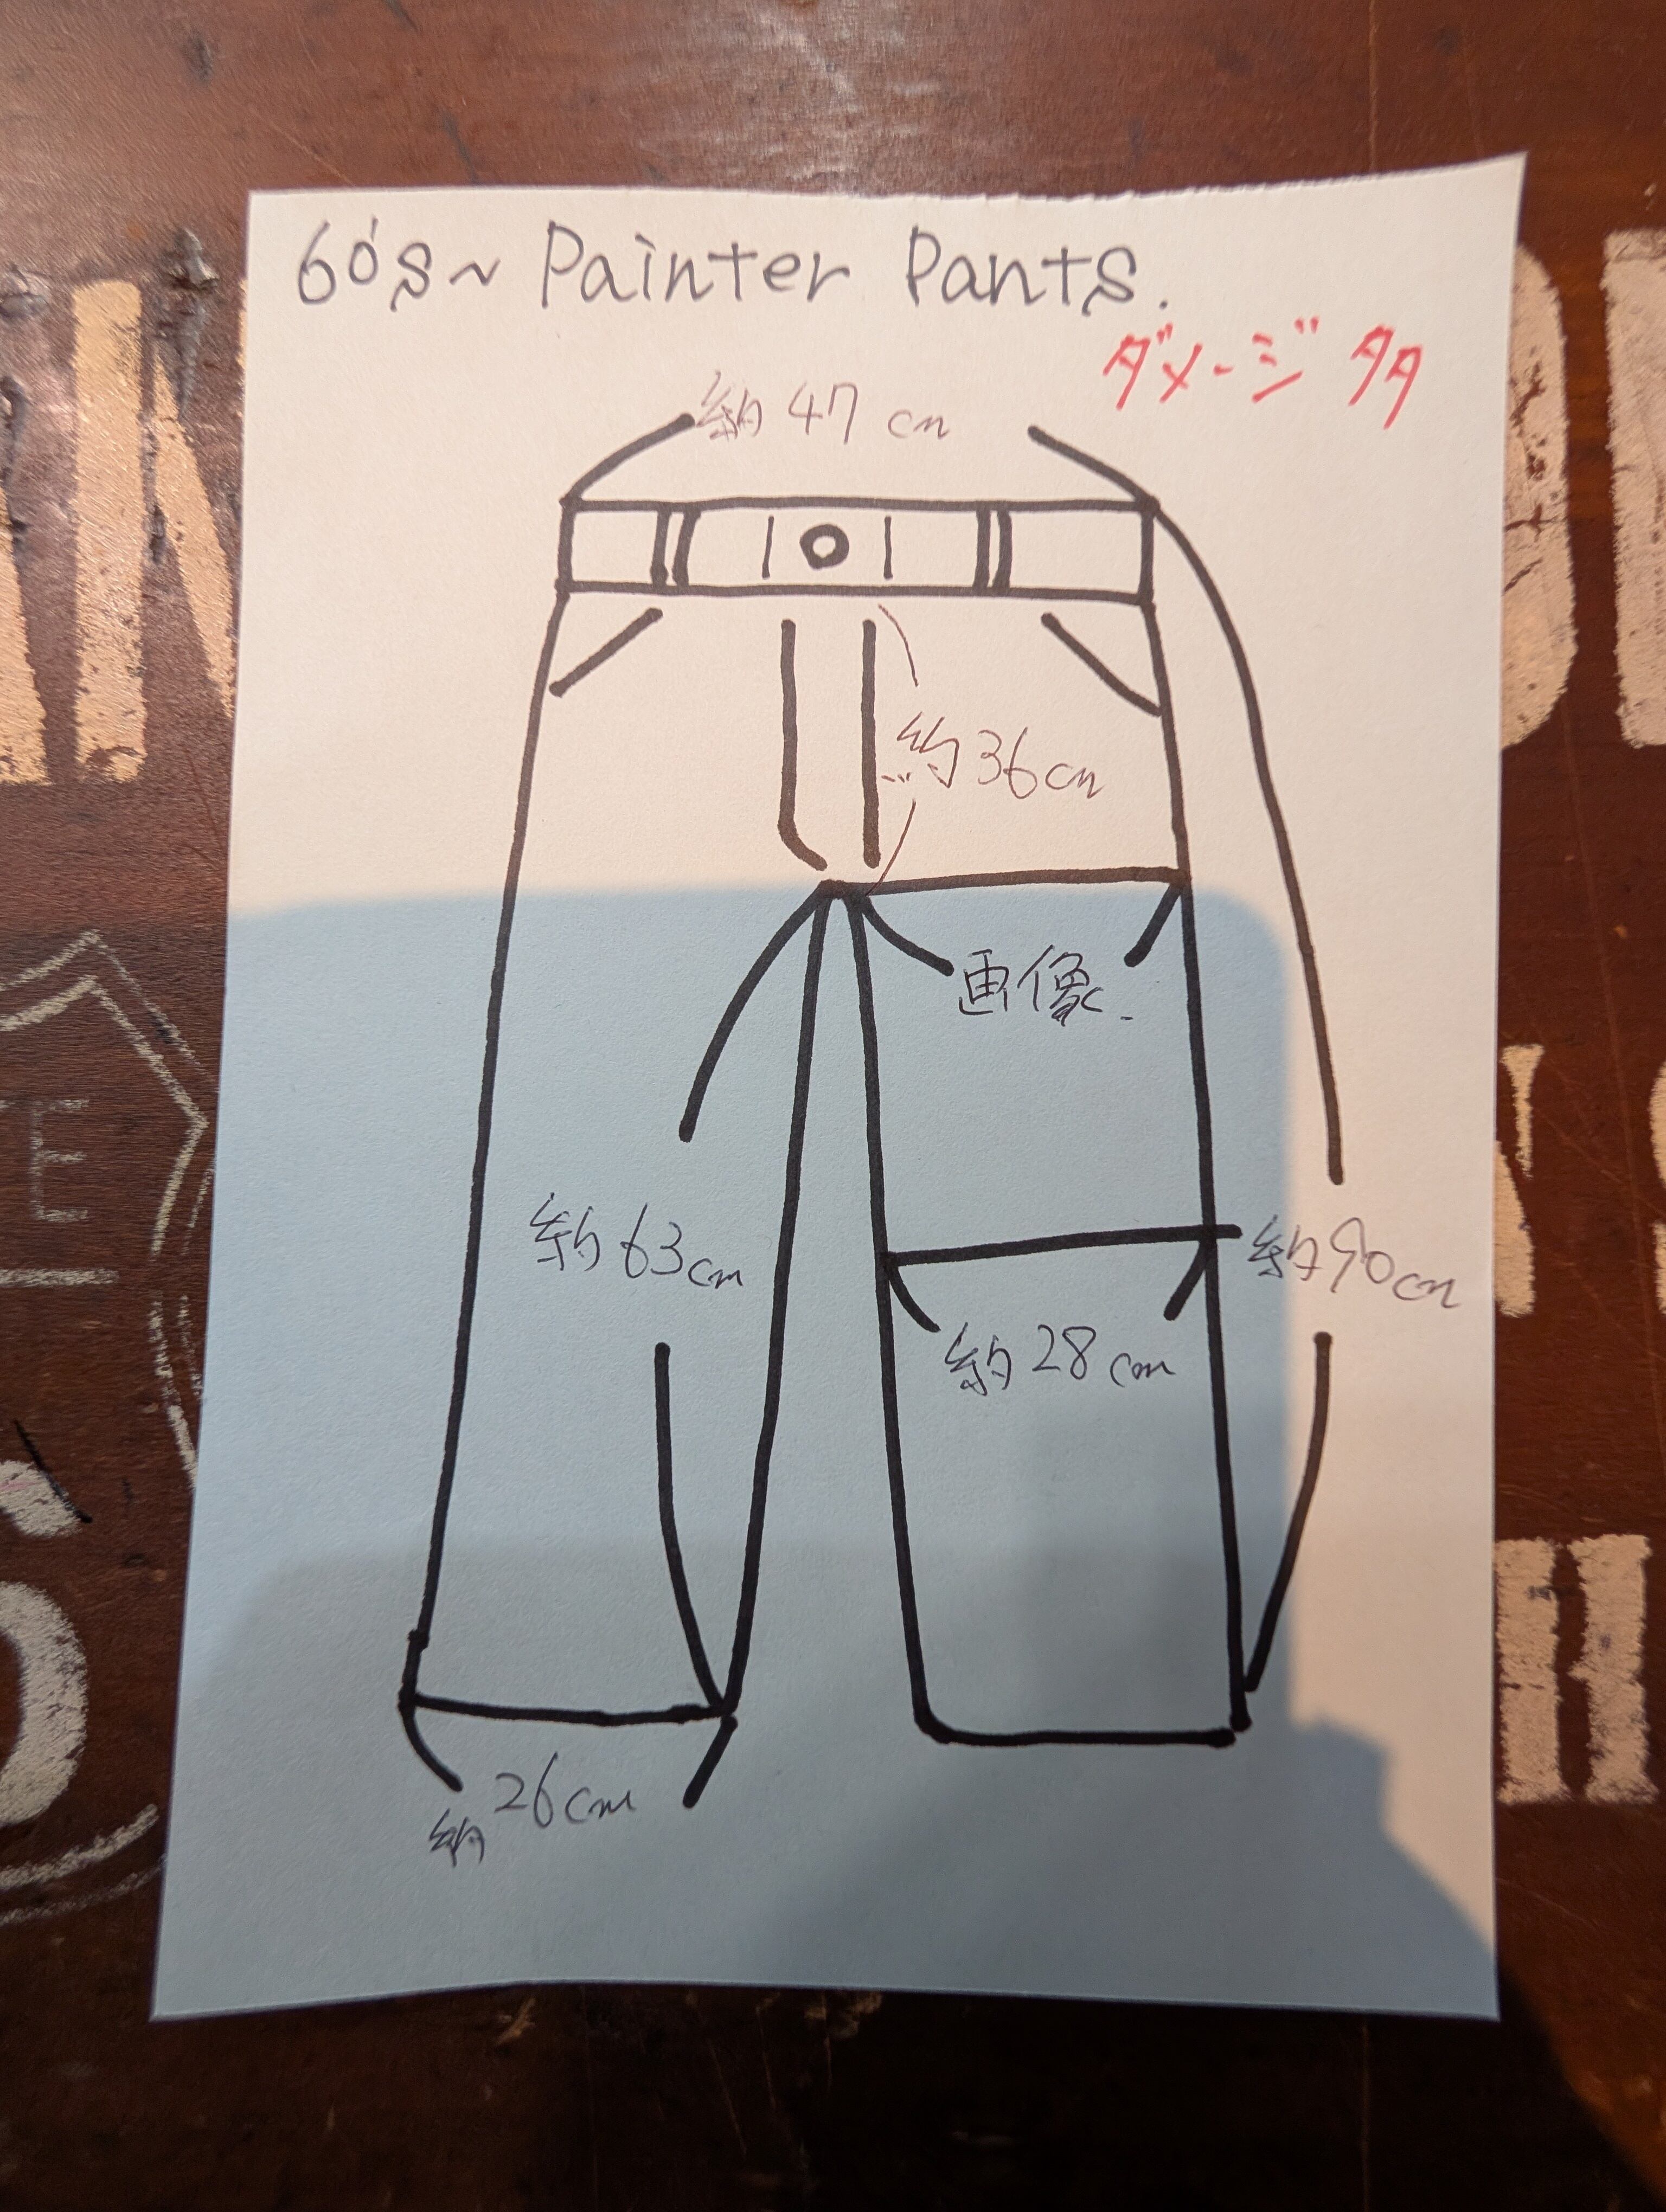 60's~ Painter Pants.
ダメージ 多
約47cm
約36cm
画像.
約63cm
約90cm
約28cm
約26cm
E